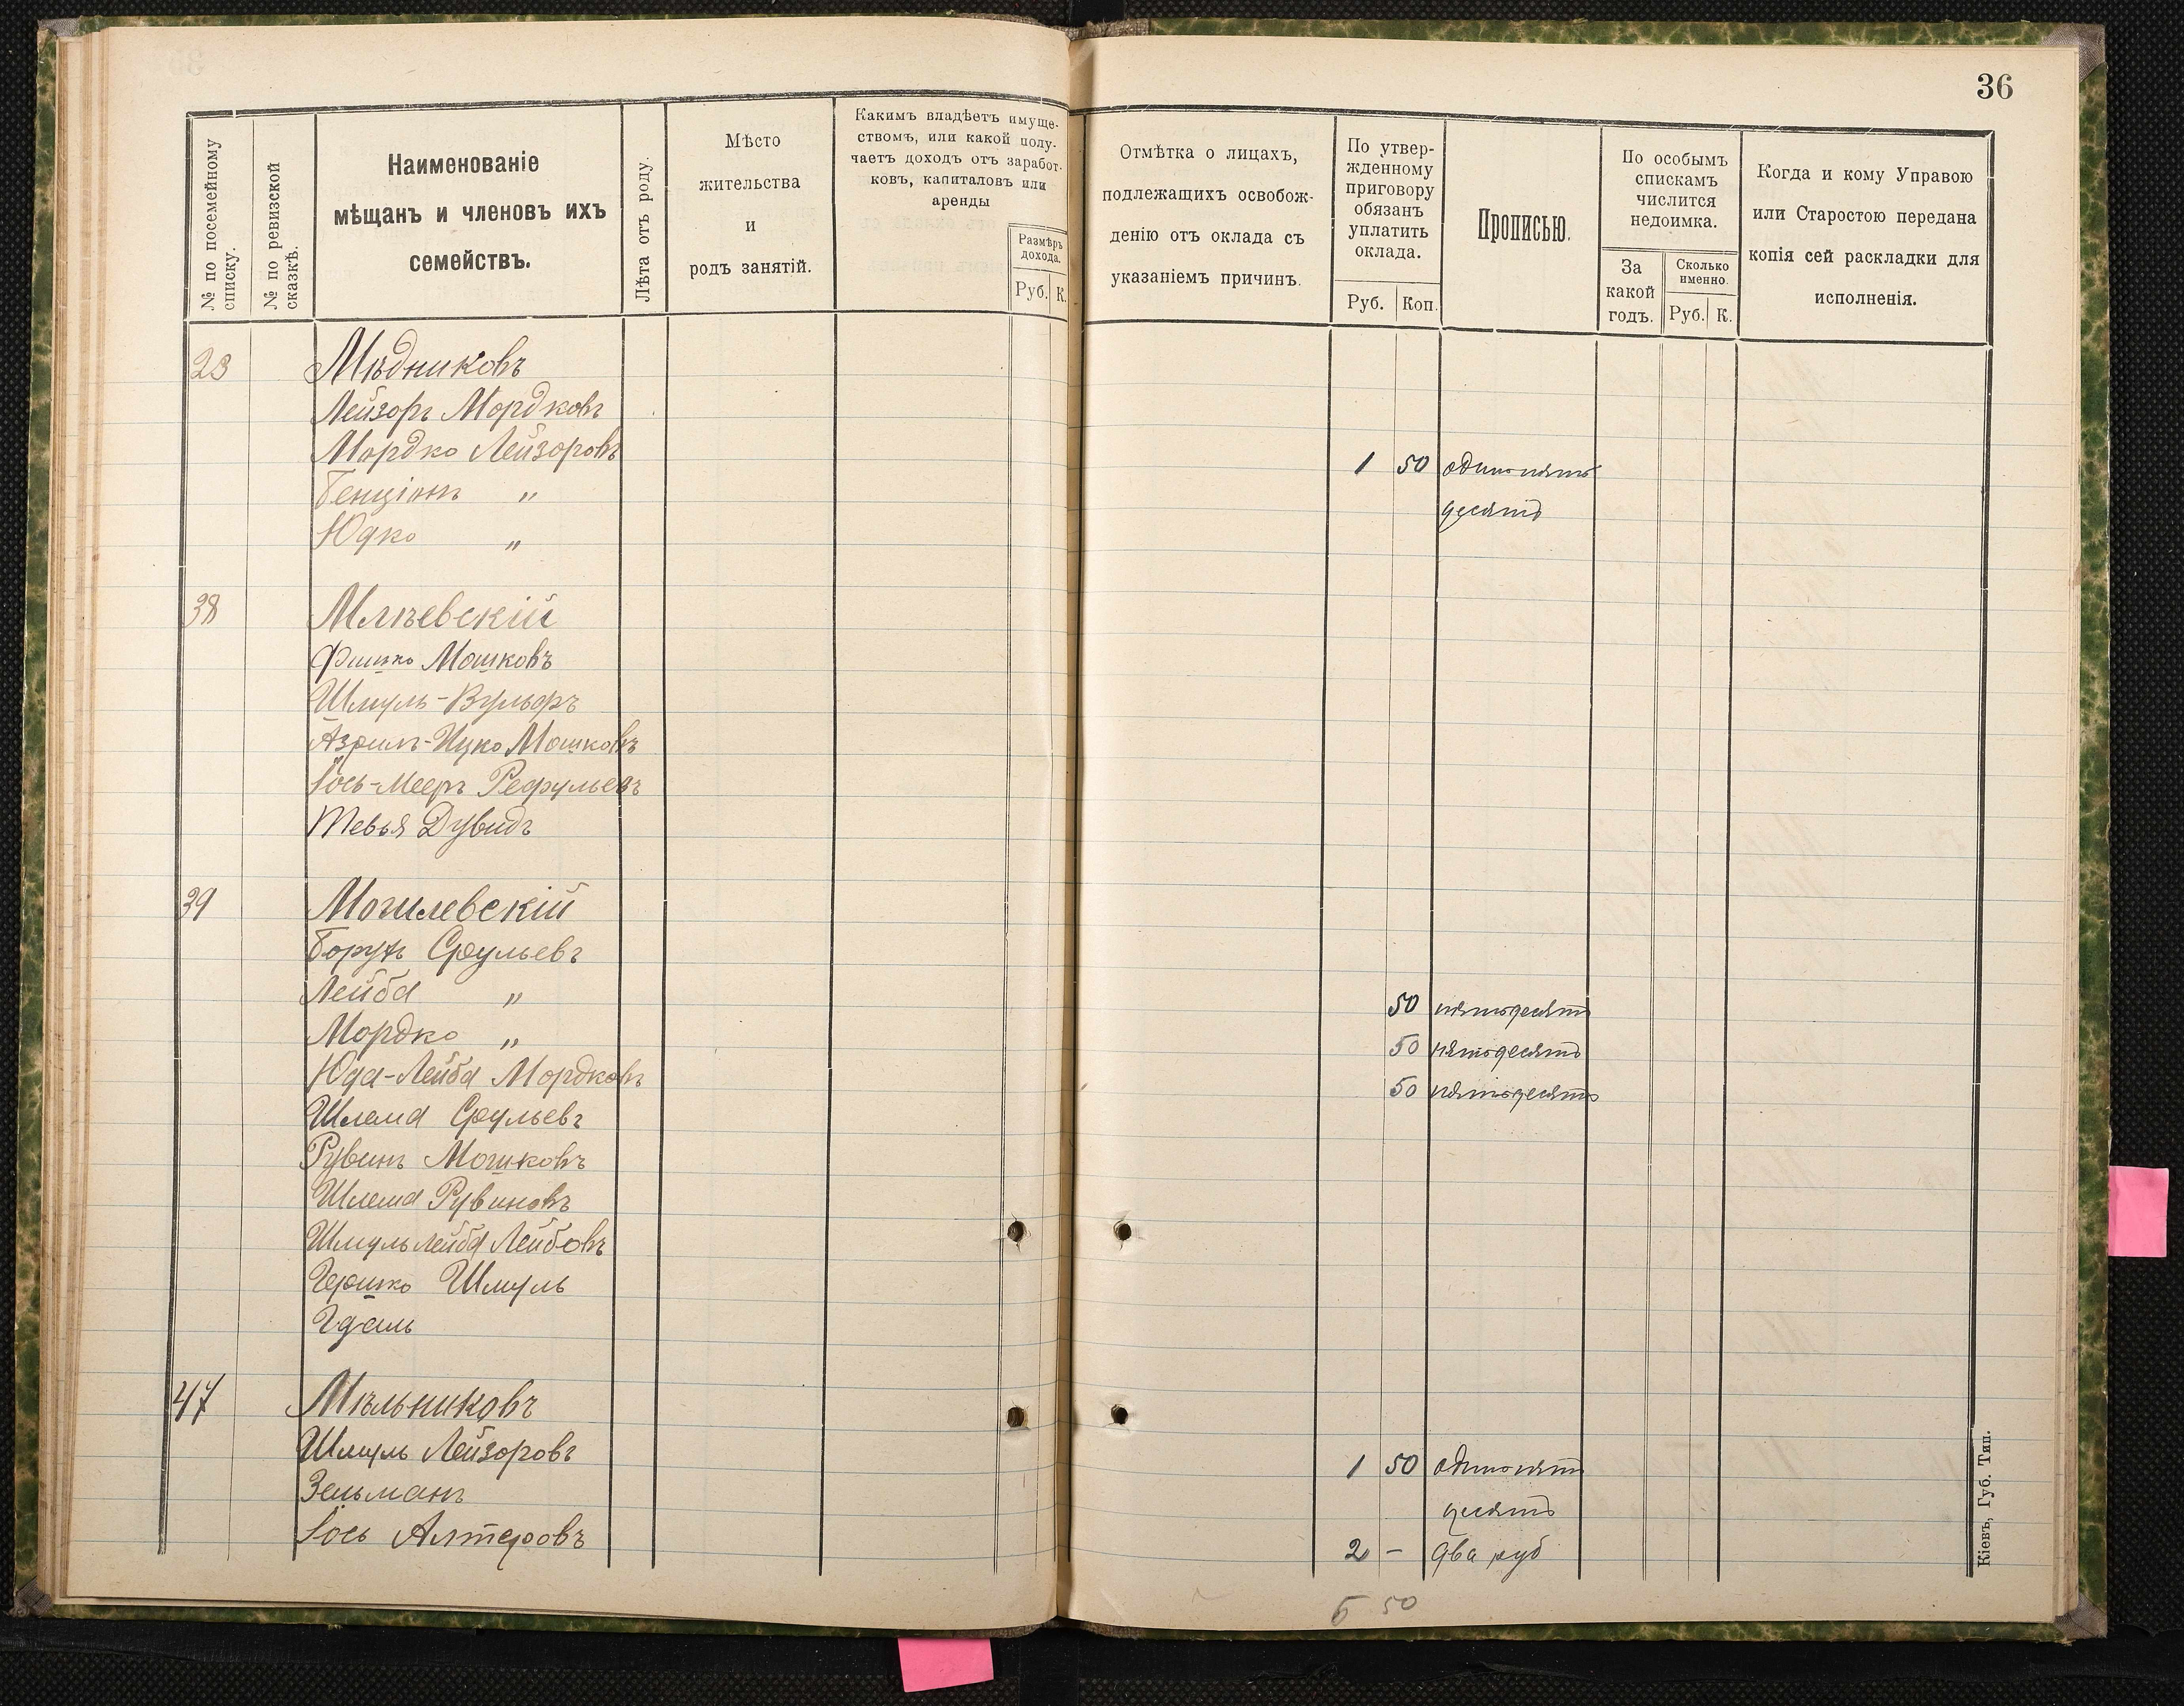 36
№ по посемейному
списку.
№ по ревизской
сказкѣ.
Наименованіе
мѣщанъ и членовъ ихъ
семействъ.
Лѣта отъ роду.
Мѣсто
жительства
и
родъ занятій.
Какимъ владѣетъ имуще-
ствомъ, или какой полу-
чаетъ доходъ отъ заработ-
ковъ, капиталовъ или
аренды
Размѣръ
дохода.
Руб. К.
Отмѣтка о лицахъ,
подлежащихъ освобож-
денію отъ оклада съ
указаніемъ причинъ.
По утвер-
жденному
приговору
обязанъ
уплатить
оклада.
Руб. Коп.
Прописью.
По особымъ
спискамъ
числится
недоимка.
За
какой
годъ.
Сколько
именно.
Руб. К.
Когда и кому Управою
или Старостою передана
копія сей раскладки для
исполненія.
23 Мѣдниковъ
Лейзоръ Мордковъ
Мордко Лейзоровъ 1 50 один пять
Бенціонъ " десятъ
Юдко "
38 Млѣевскій
Фишко Мошковъ
Шмуль-Вульфъ
Азрилъ-Ицко Мошковъ
Іось-Мееръ Рефульевъ
Тевья Дувидъ
39 Могилевскій
Борухъ Срульевъ
Лейба " 50 пятьдесятъ
Мордко " 50 пятьдесятъ
Юда-Лейба Мордковъ 50 пятьдесятъ
Шлема Срульевъ
Рувинъ Мошковъ
Шлема Рувиновъ
Шмуль Лейба Лейбовъ
Гершко Шмуль
Гдаль
47 Мѣльниковъ
Шмуль Лейзоровъ 1 50 один пять
Зельманъ десятъ
Іось Алтеровъ 2 - два руб
50
Кіевъ, Губ. Тип.